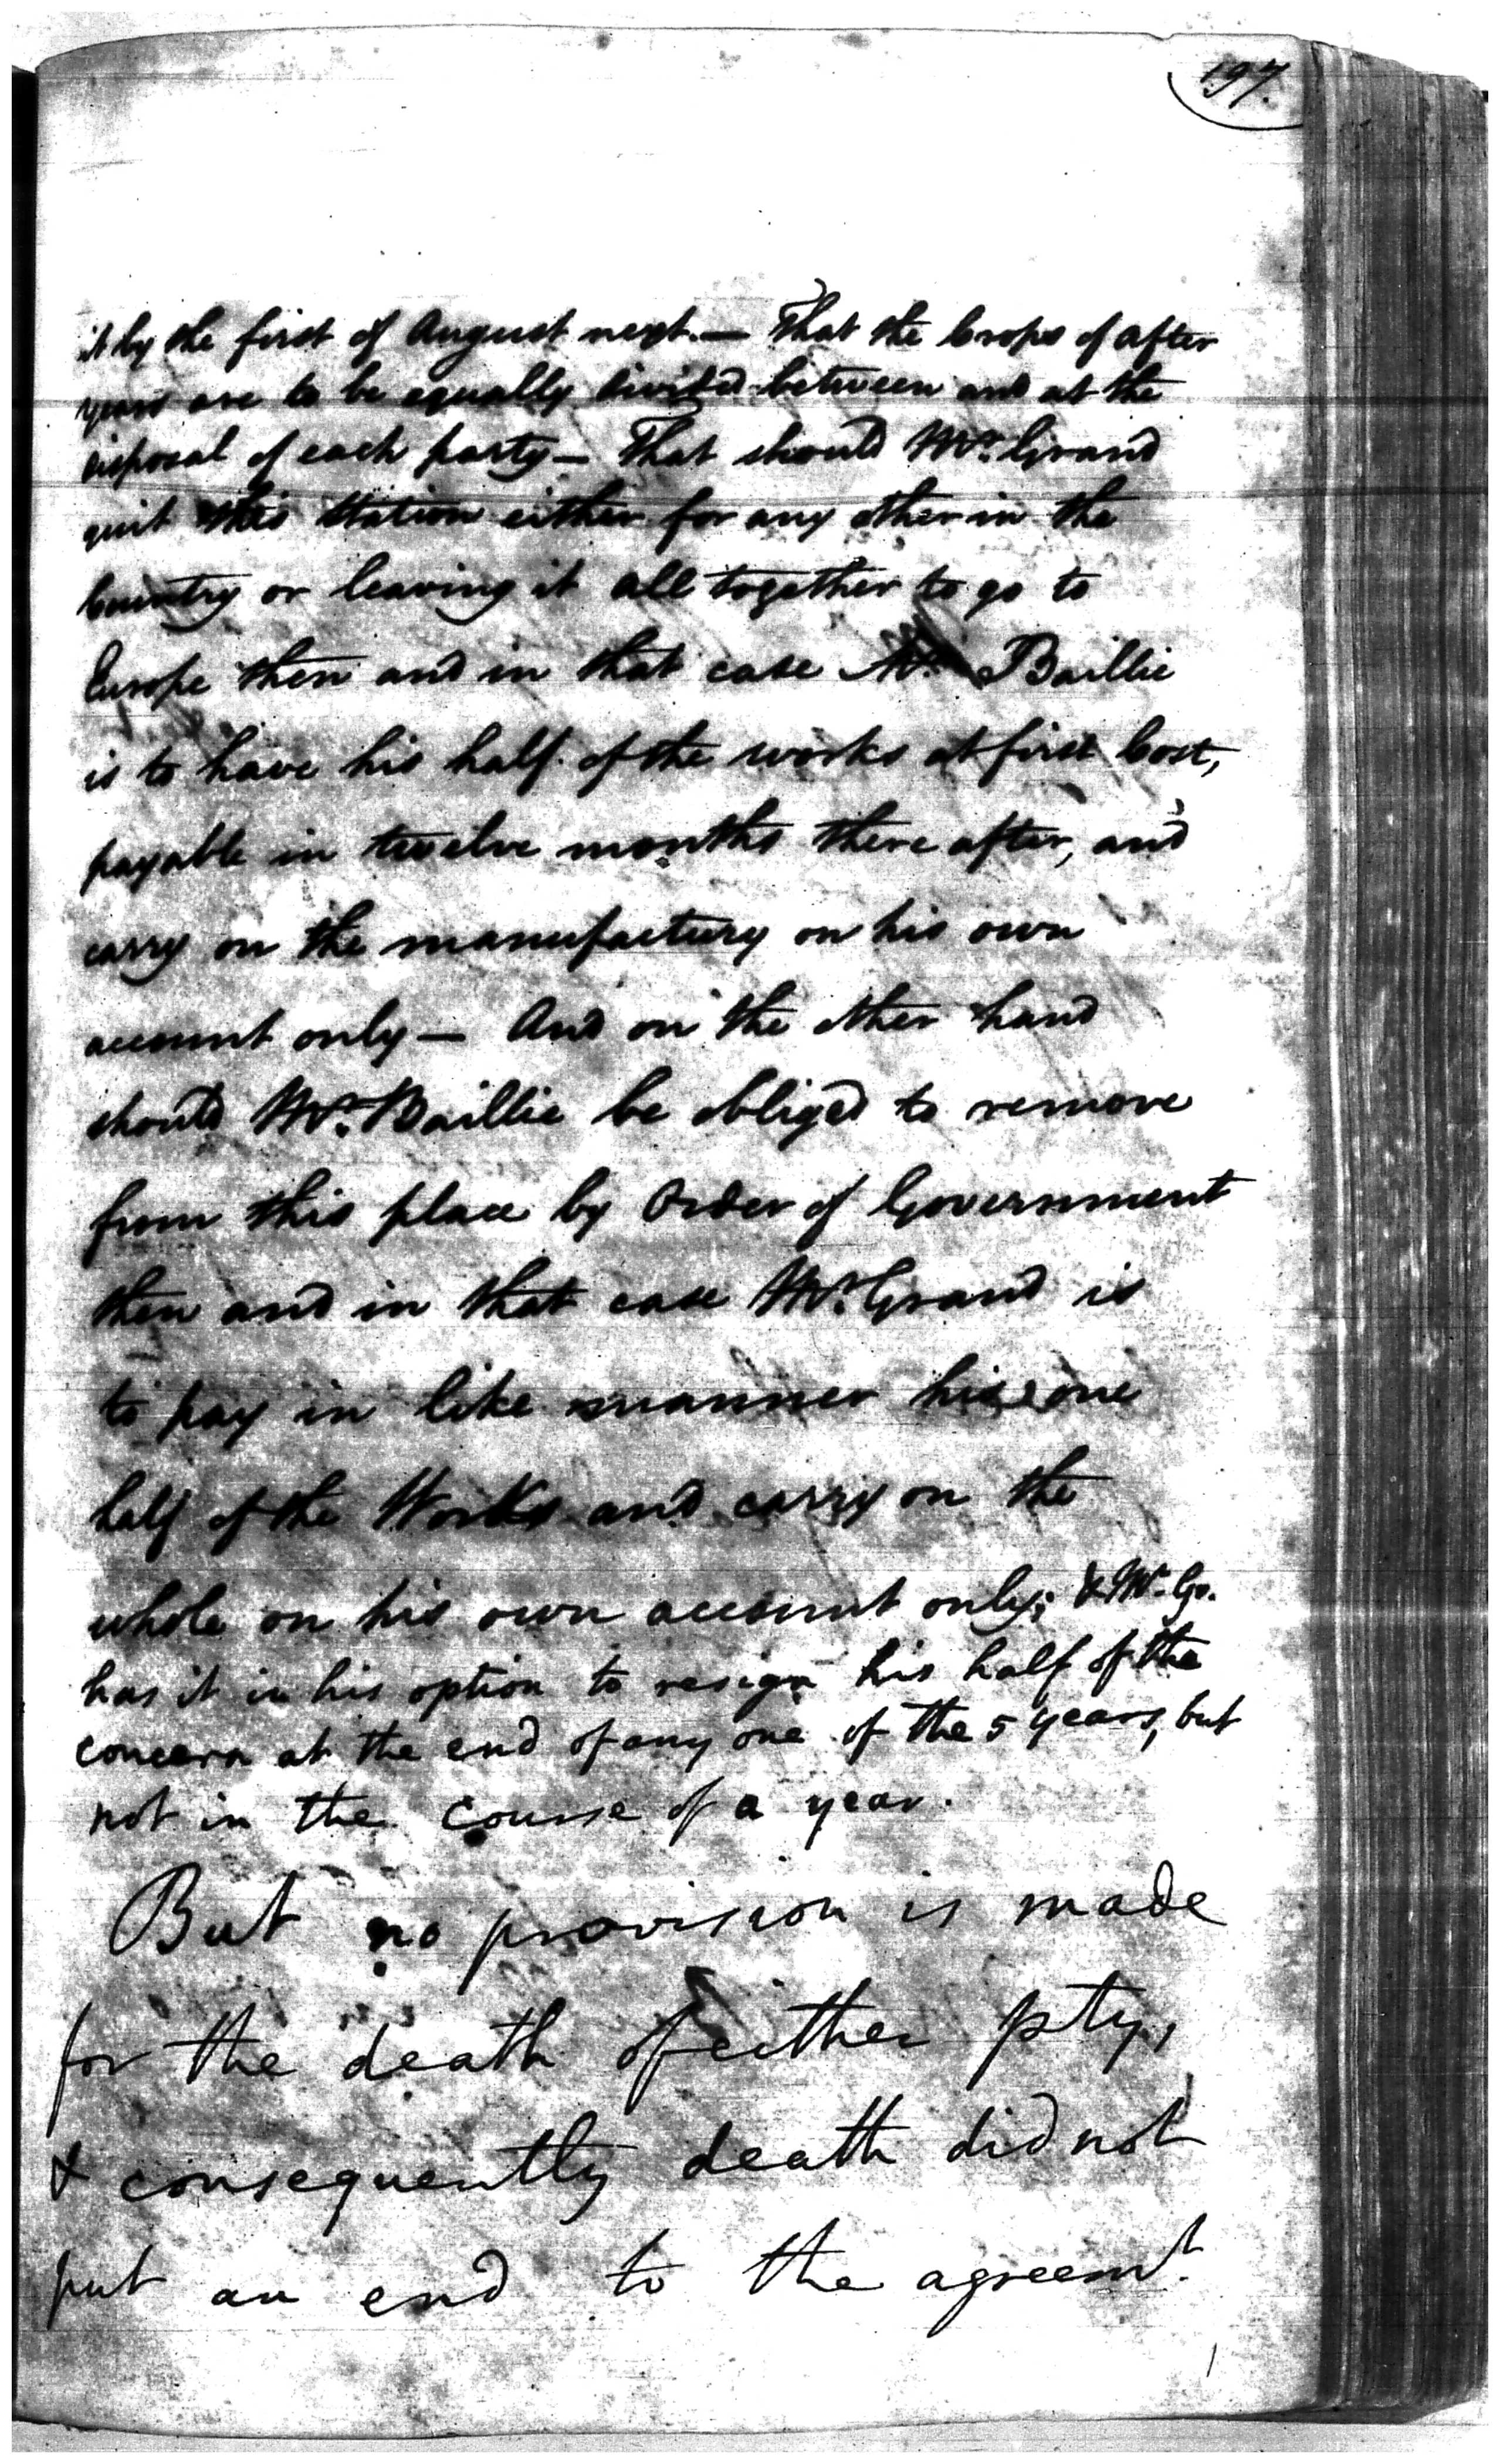 197.
it by the first of August next.— That the Crops of after
years are to be equally divided between and at the
disposal of each party— That should Mr. Grand
quit this Station either for any other in the
Country or leaving it all together to go to
Europe then and in that case Mr. Baillie
is to have his half of the works at first Cost,
payable in twelve months there after, and
carry on the manufactury on his own
account only— And on the other hand
should Mr. Baillie be obliged to remove
from this place by Order of Government
then and in that case Mr. Grand is
to pay in like manner his one
half of the Works and carry on the
whole on his own account only; & Mr. Gr.
has it in his option to resign his half of the
concern at the end of any one of the 5 years, but
not in the course of a year.
But no provision is made
for the death of either pty,
& consequently death did not
put an end to the agreemt.